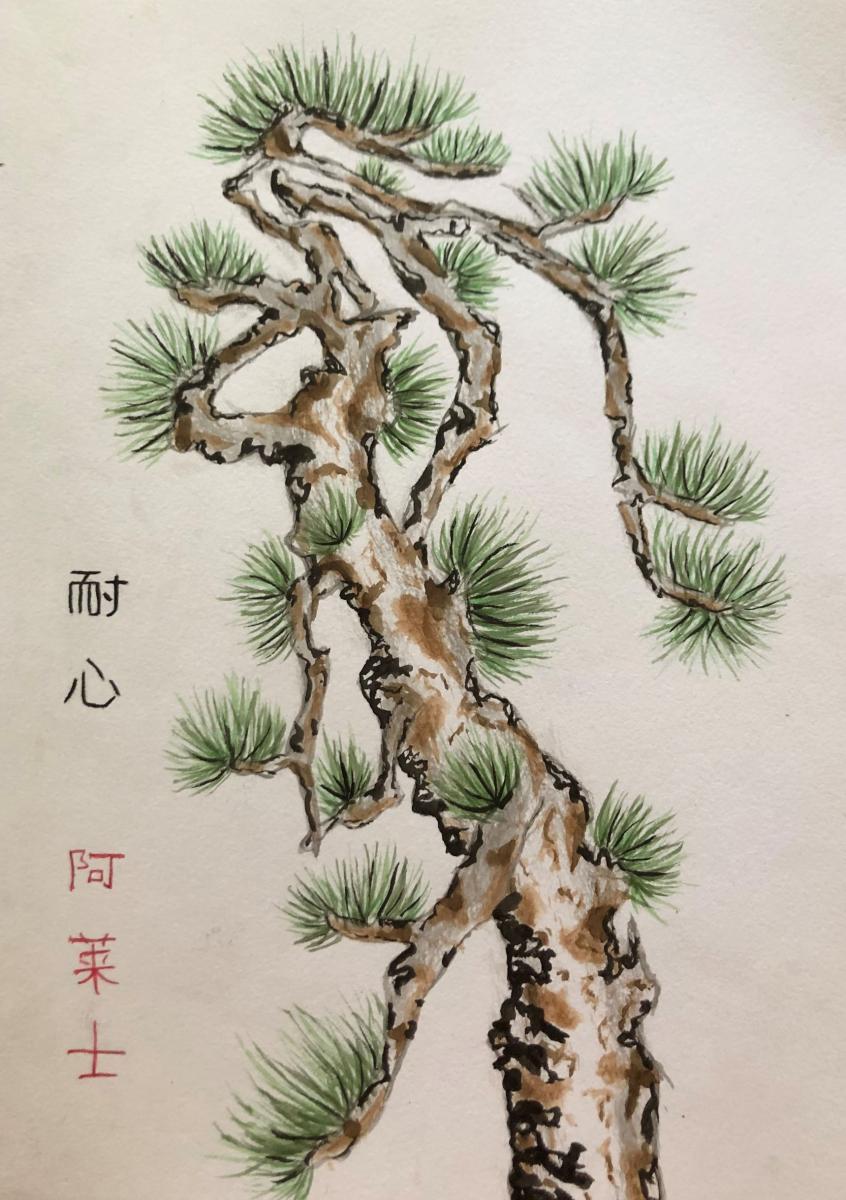 耐心
阿莱士